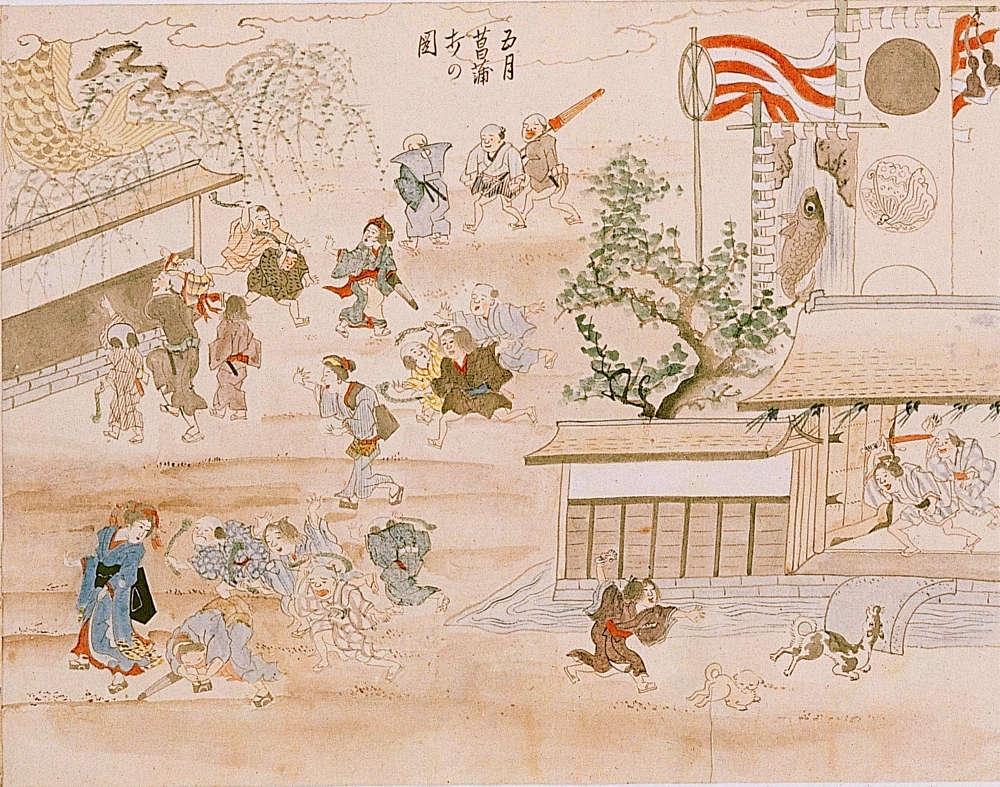 五月
菖蒲
打の
図